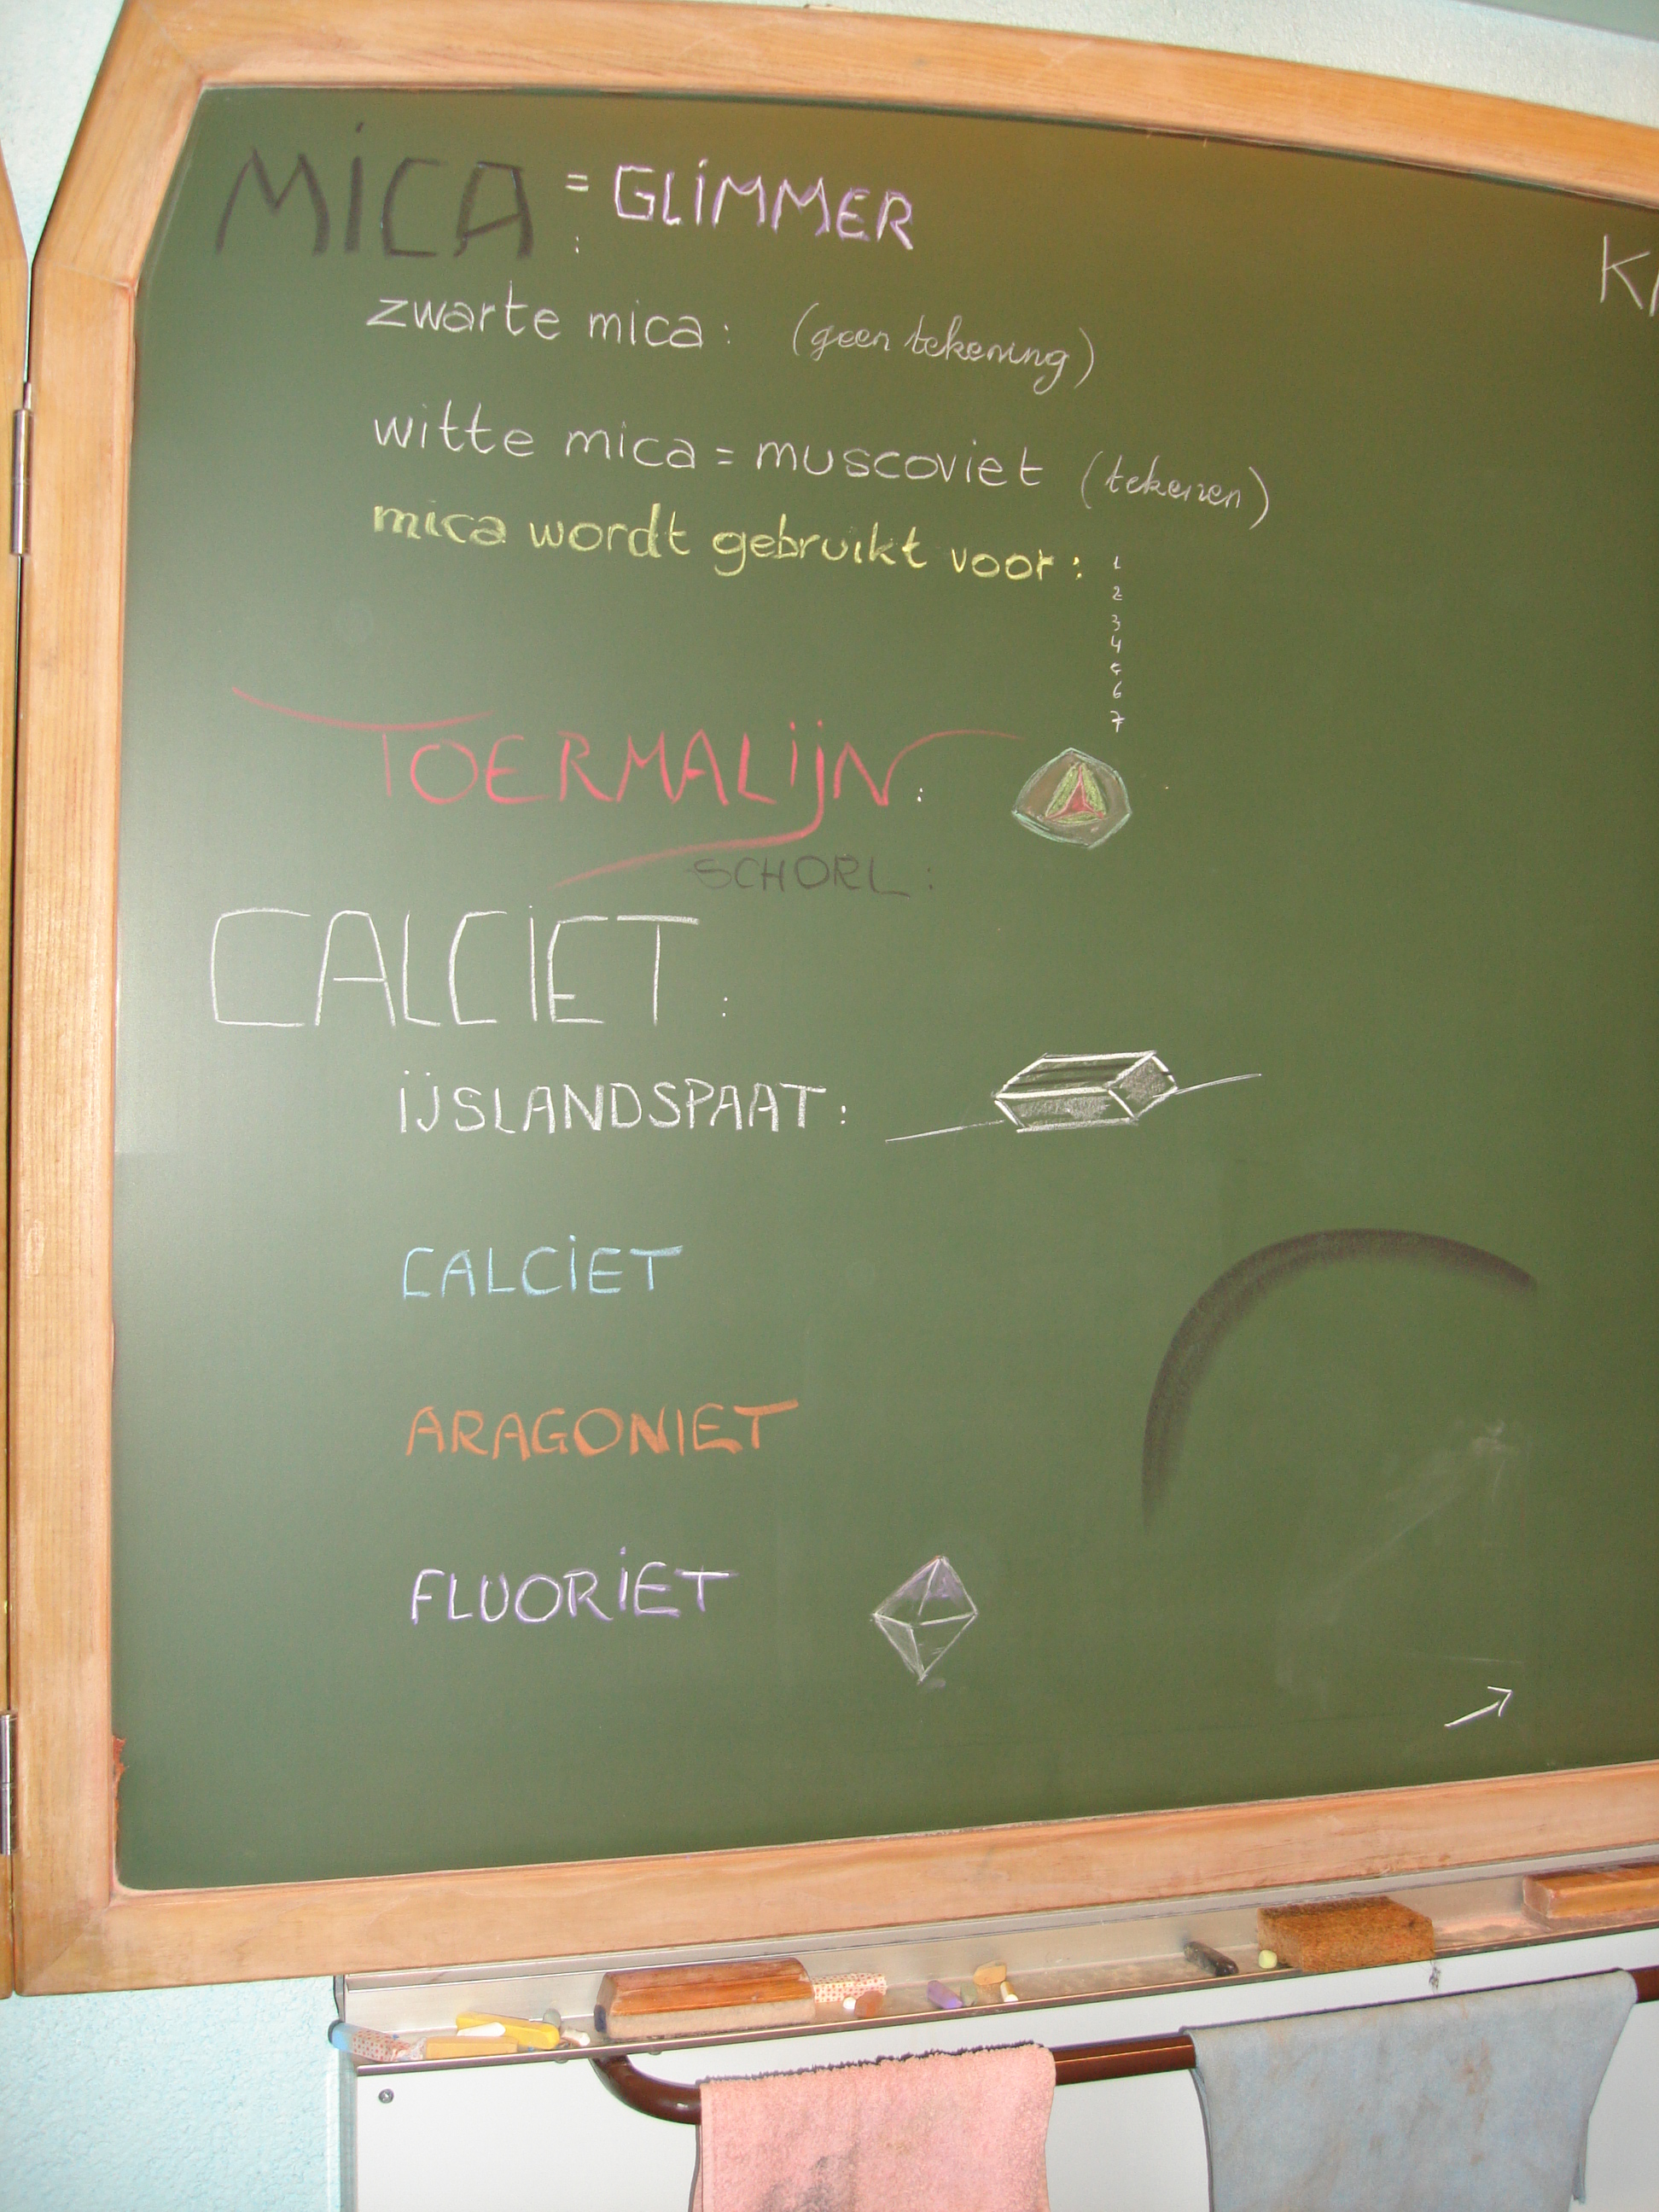 MICA = GLIMMER
:
zwarte mica: (geen tekening)
witte mica = muscoviet (tekenen)
mica wordt gebruikt voor: 1
2
3
4
5
6
7
TOERMALIJN:
SCHORL:
CALCIET:
IJSLANDSPAAT:
CALCIET
ARAGONIET
FLUORIET